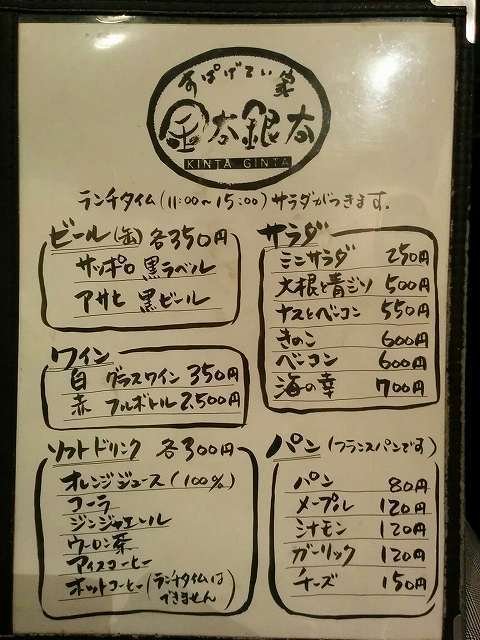 すぱげてぃ家
金太銀太
KINTA GINTA
ランチタイム(11:00~15:00)サラダがつきます。
ビール(缶) 各350円
サッポロ 黒ラベル
アサヒ 黒ビール
ワイン
白 グラスワイン 350円
赤 フルボトル 2,500円
ソフトドリンク 各300円
オレンジジュース(100%)
コーラ
ジンジャエール
ウーロン茶
アイスコーヒー
ホットコーヒー(ランチタイムはできません)
サラダ
ミニサラダ 250円
大根と青ジソ 500円
ナスとベーコン 550円
きのこ 600円
ベーコン 600円
海の幸 700円
パン(フランスパンです)
パン 80円
メープル 120円
シナモン 120円
ガーリック 120円
チーズ 150円